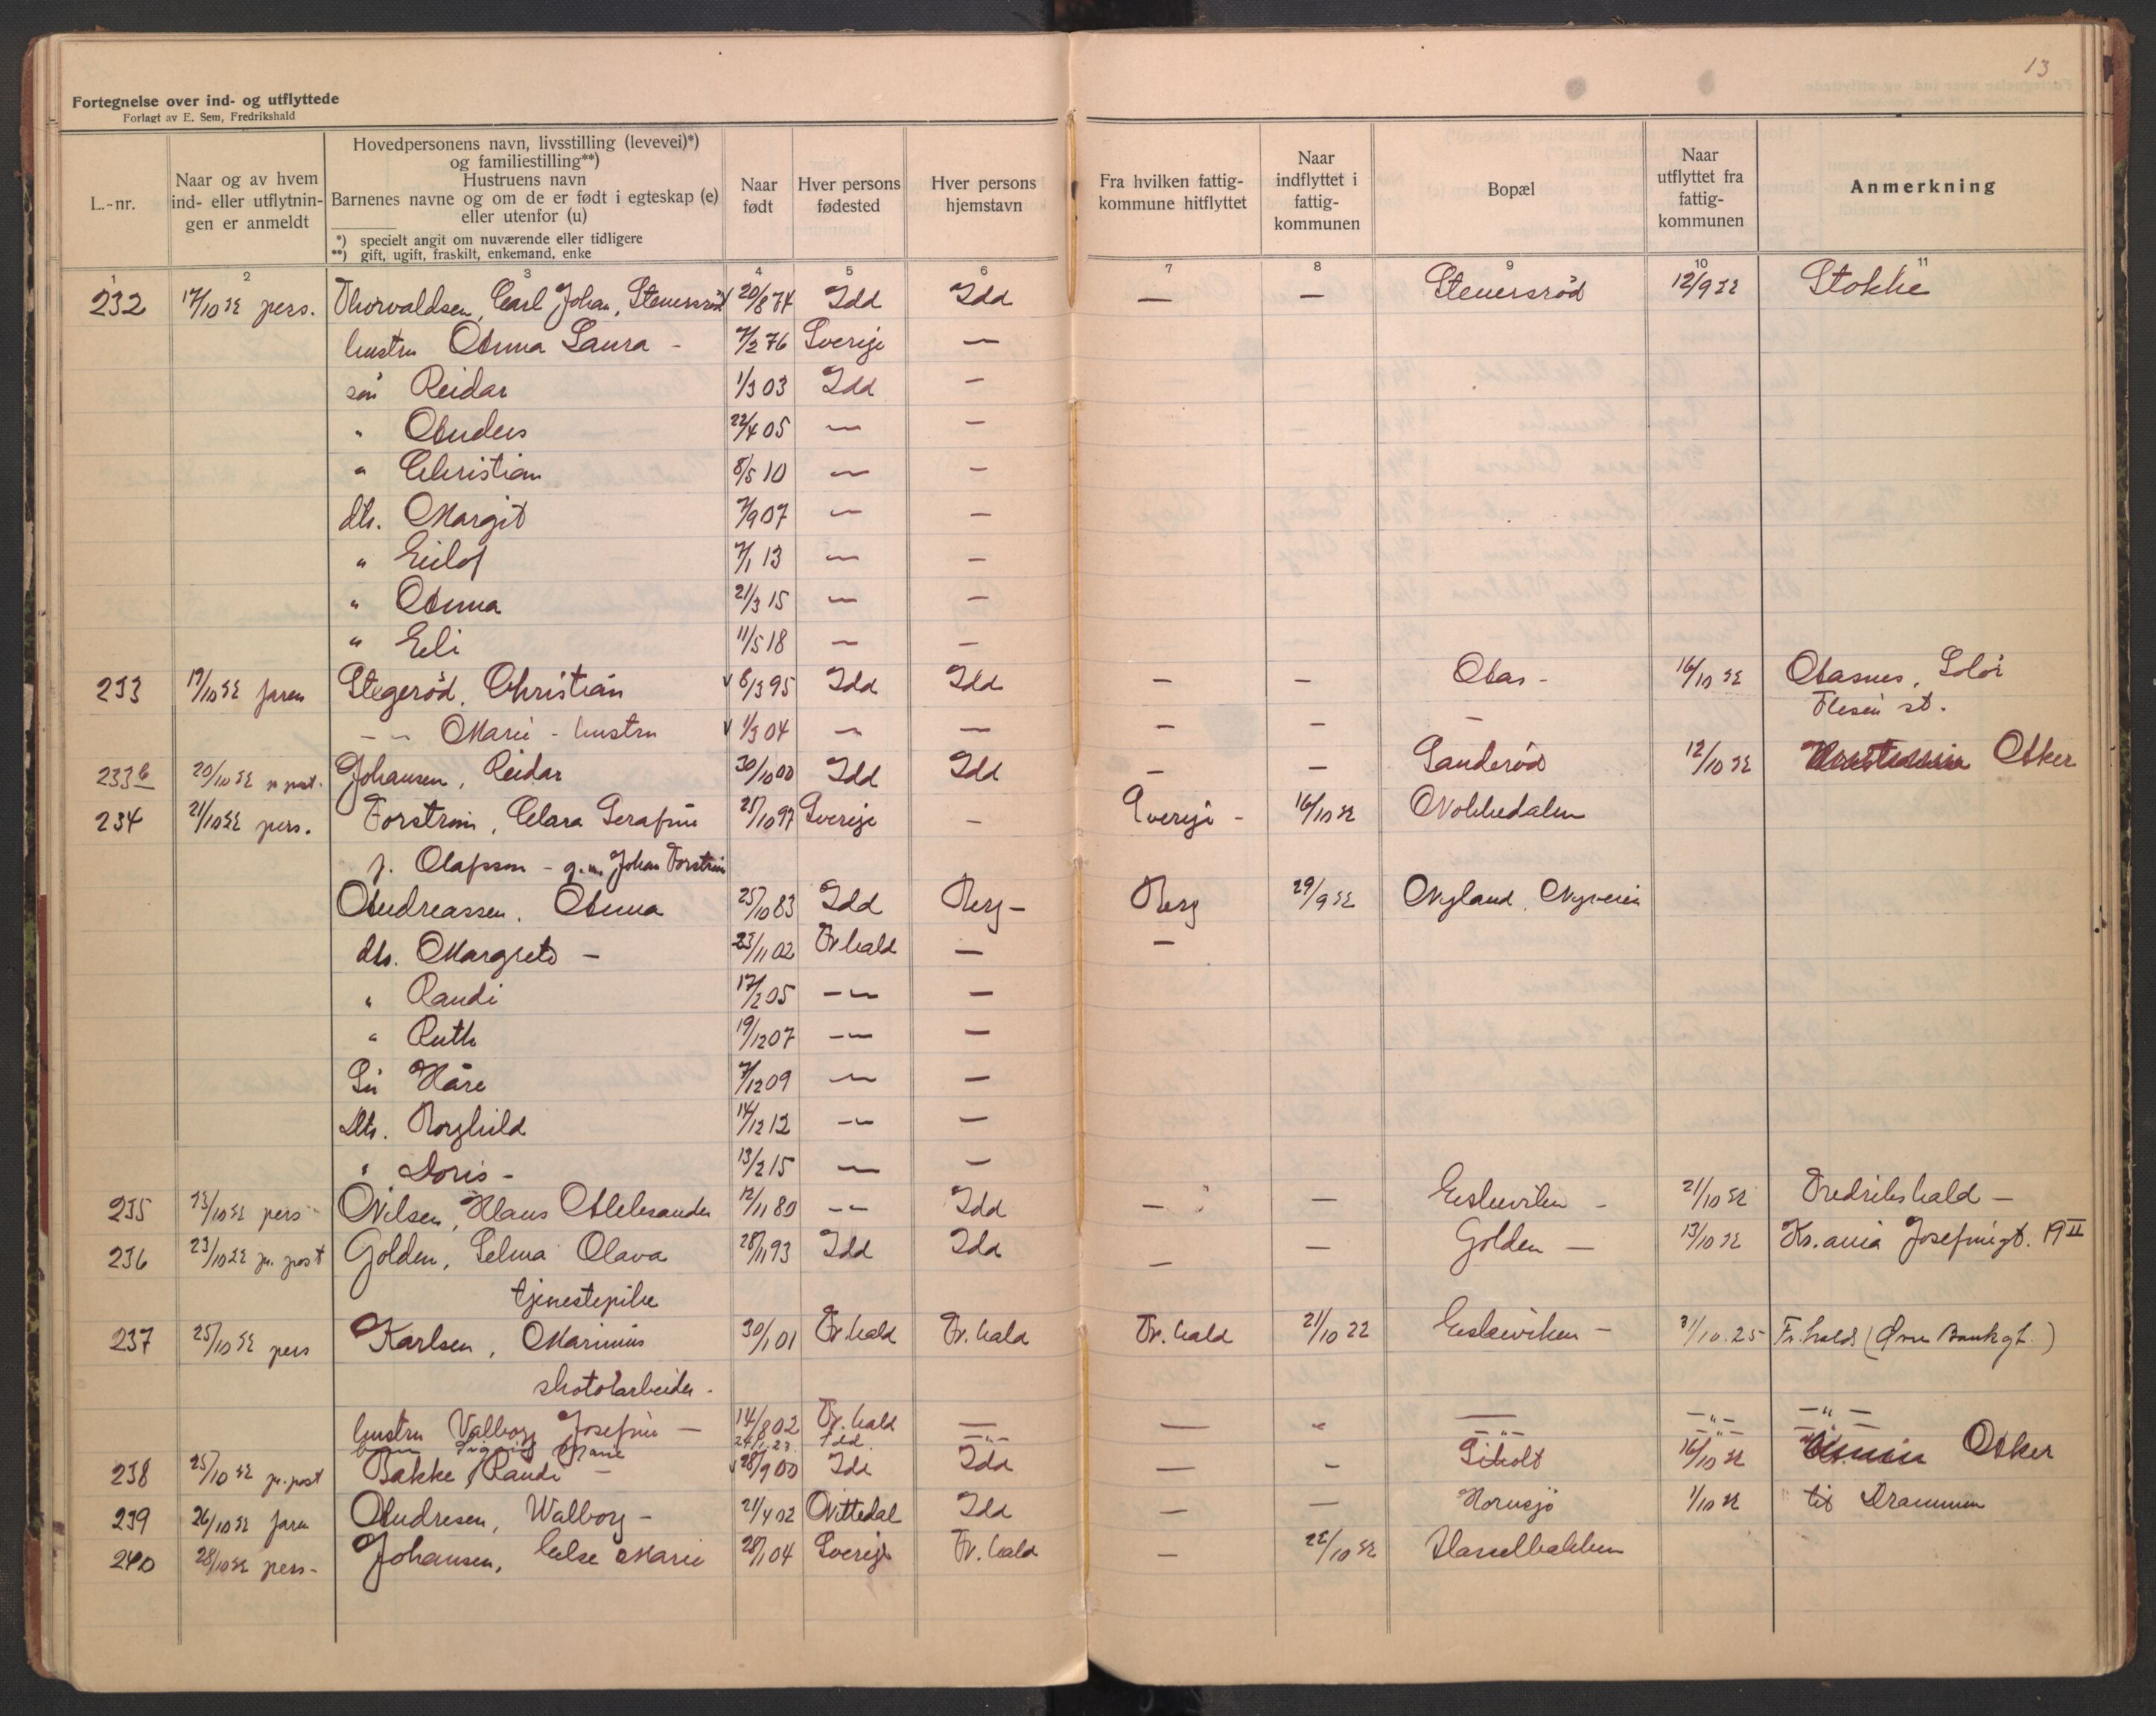 13
Fortegnelse over ind- og utflyttede
Forlagt av E. Sem, Fredrikshald
L.-nr.
Naar og av hvem ind- eller utflytnin- gen er anmeldt
Hovedpersonens navn, livsstilling (levevei)*)
og familiestilling**)
Hustruens navn
Barnenes navne og om de er født i egteskap (e)
eller utenfor (u)
*) specielt angit om nuværende eller tidligere
**) gift, ugift, fraskilt, enkemand, enke
Naar født
Hver persons fødested
Hver persons hjemstavn
Fra hvilken fattig- kommune hitflyttet
Naar indflyttet i fattig- kommunen
Bopæl
Naar utflyttet fra fattig- kommunen
Anmerkning
1 2 3 4 5 6 7 8 9 10 11
232 17/10 22 pers. Thorvaldsen, Carl Johan, Stenersrød 20/8 74 Idd Idd — — Stenersrød 12/9 22 Stokke
hustru Anna Laura - 7/2 76 Sverige —
søn Reidar 1/3 03 Idd —
" Anders 22/4 05 — —
" Christian 8/5 10 — —
dtr. Margit 7/9 07 — —
" Eilef 7/1 13 — —
" Anna 21/3 15 — —
" Eli 11/5 18 — —
233 19/10 22 faren Stegerød, Christian v 6/3 95 Idd Idd — — Aas - 16/10 22 Aasnes, Solør
Flesen st.
— — Marie - hustru v 1/3 04 — — — — —
233b 20/10 22 p. post. Johansen, Reidar 30/10 00 Idd Idd — — Sanderød 12/10 22 Asker
234 21/10 22 pers. Forstrøm, Clara Serafine 25/10 97 Sverige — Sverige - 16/10 22 Nokkedalen
f. Olafsson - g.m. Johan Forstrøm
Andreassen, Anna 25/10 83 Idd Berg - Berg 29/9 22 Nyland, Nyveien
dtr. Margrete - 23/11 02 Fr.hald — —
" Randi 17/2 05 — — —
" Ruth 19/12 07 — — —
Søn Kåre 7/12 09 — —
Dtr. Borghild 14/12 12 — —
" Doris - 13/2 15 — —
235 23/10 22 pers Nilsen, Klaus Aleksander 12/11 80 — — Idd — — Eskeviken - 21/10 22 Fredrikshald —
236 23/10 22 p. post Golden, Selma Olava 28/11 93 Idd Idd — — Golden — 13/10 22 Kr.ania Josefinegt. 19 II
tjenestepike
237 25/10 22 pers Karlsen, Marinius 30/1 01 Fr.hald Fr. hald Fr. hald 21/10 22 Eskeviken - 31/10.25 Fr.hald (Øvre Bankgt.)
skotøiarbeider.
hustru Valborg Josefine — 14/8 02 Fr. hald — — " — —"— —"—
barn Marie 24/1 23. Idd. —"— —"— —"— —"—
238 25/10 22 p. post Bakke, Randi — v 28/9 00 Idd Idd — - Siholt 16/10 22 Asker
239 26/10 22 faren Andresen, Walborg - 21/4 02 Nittedal Idd — — Kornsjø 1/10 22 til Drammen
240 28/10 22 pers - Johansen, Else Marie 28/1 04 Sverige Fr. hald — 22/10 22 Hasselbakken